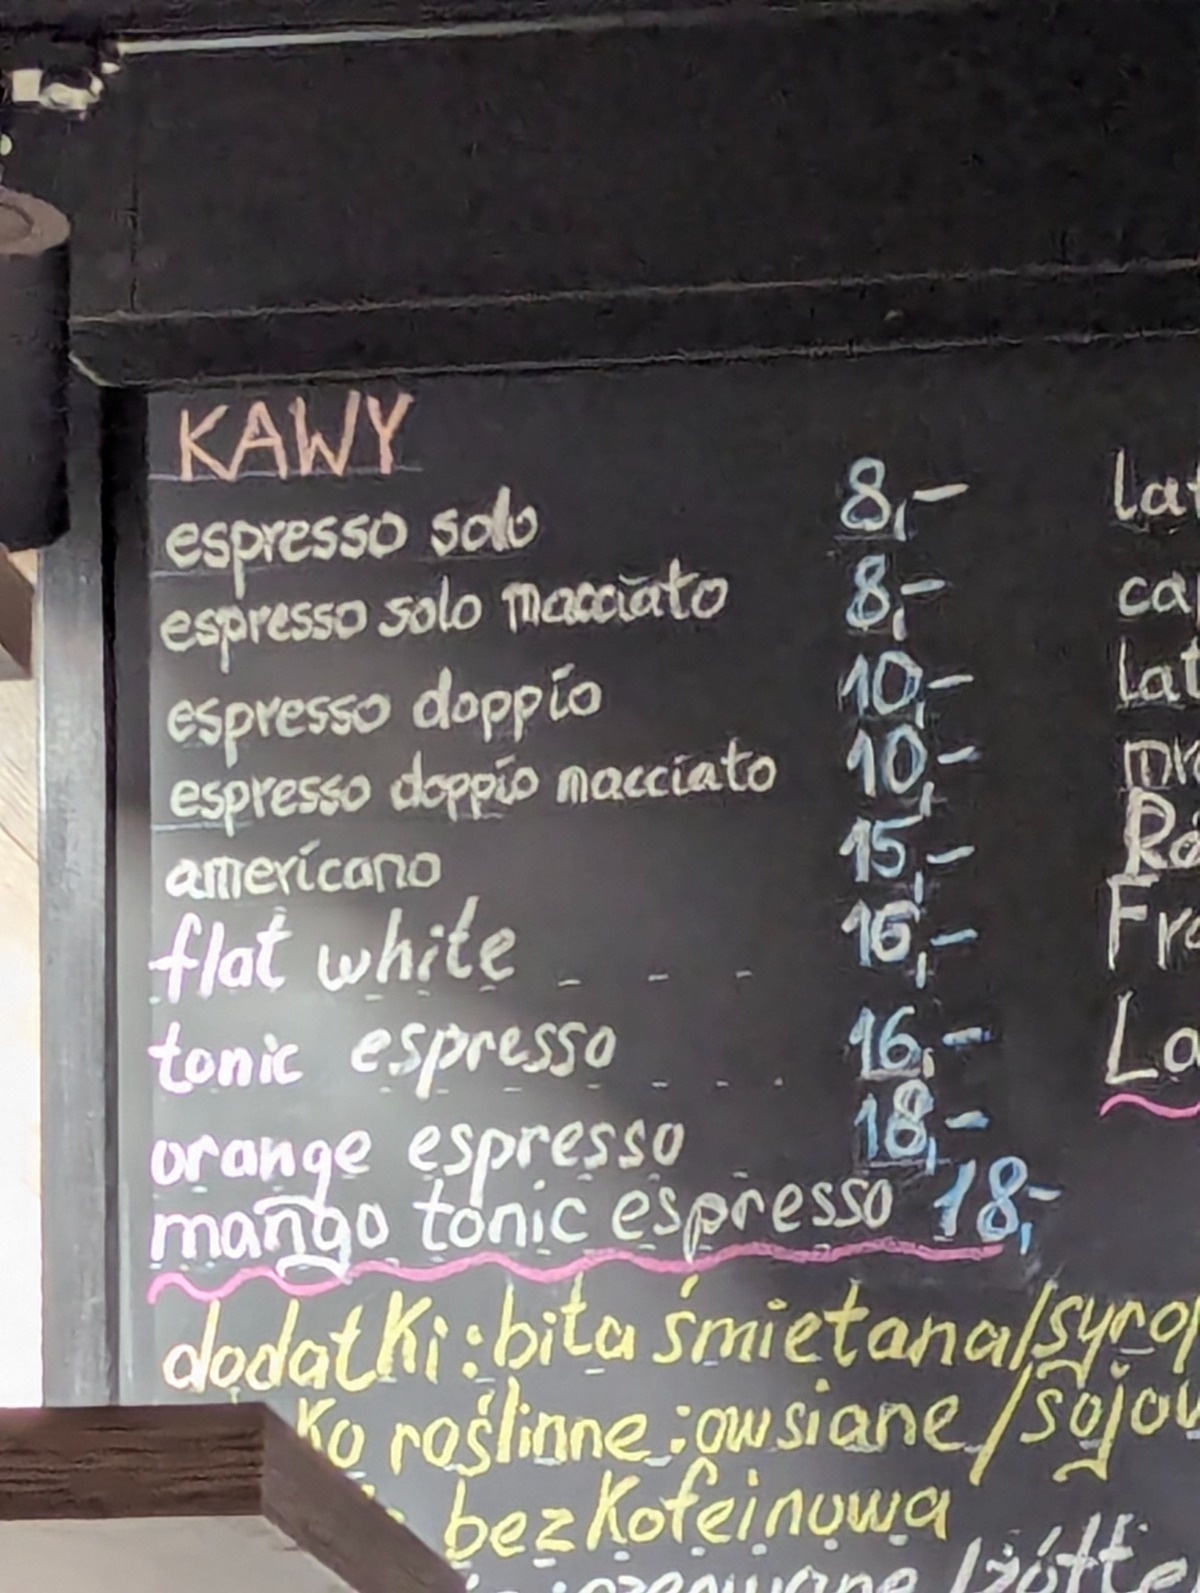 KAWY
espresso solo 8,-
espresso solo macciato 8,-
espresso doppio 10,-
espresso doppio macciato 10,-
americano 15,-
flat white - - - 16,-
tonic espresso - - - . 16,-
orange espresso 18,-
mango tonic espresso 18,-
lat
ca
lat
mr
Ra
Fra
La
dodatki: bita śmietana/syrop
ko roślinne: owsiane/sojow
bezkofeinowa